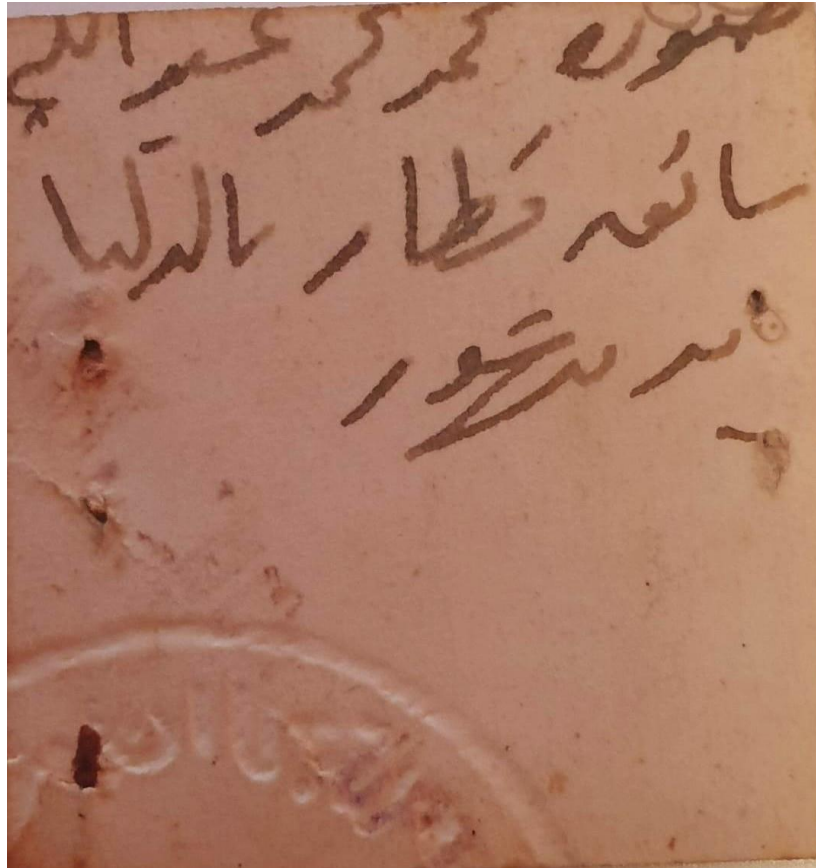 صورة محمد محمد عبد النبي
سائق قطار بالدلتا
بدمنهور